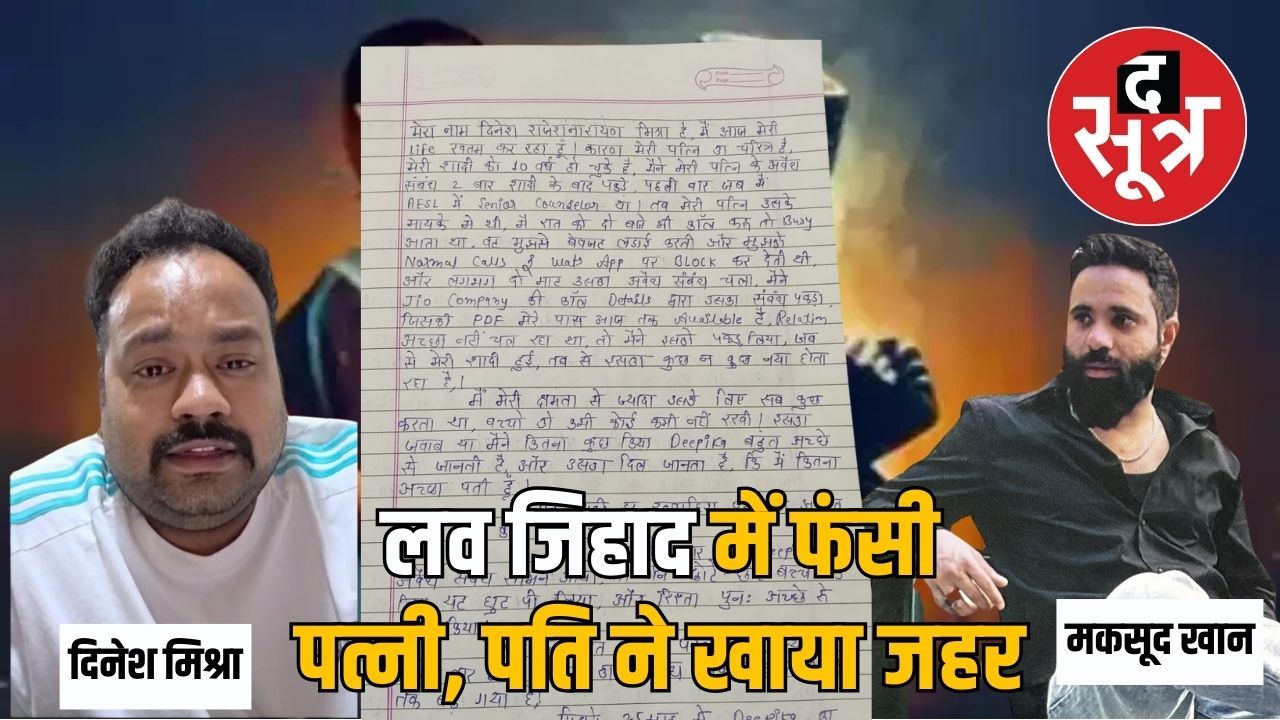 द
सूत्र
मेरा नाम दिनेश राजेशनारायण मिश्रा है, मैं आज मेरी
Life खतम कर रहा हूँ। कारण मेरी पत्नि का चरित्र है,
मेरी शादी को 10 वर्ष हो चुके है, मैंने मेरी पत्नि के अवैध
संबंध 2 बार शादी के बाद पकड़े, पहली बार जब मैं
AESL में Senior Counselor था। तब मेरी पत्नि उसके
मायके मे थी, मैं रात को दो बजे भी कॉल करू तो Busy
आता था, वह मुझसे बेवजह लडाई करती और मुझको
Normal Calls व Wats App पर BLOCK कर देती थी,
और लगभग दो माह उसका अवैध संबंध चला, मैंने
Jio Company की कॉल Details द्वारा उसका संबंध पकड़ा,
जिसकी PDF मेरे पास आज तक Available है, Relation
अच्छा नहीं चल रहा था, तो मैंने इसको पकड़ लिया, जब
से मेरी शादी हुई, तब से इसका कुछ न कुछ नया होता
रहा है।
मैं मेरी क्षमता से ज्यादा उसके लिए सब कुछ
करता था, बच्चो को कभी कोई कमी नहीं रखी। इसका
जवाब या मैंने कितना कुछ किया Deepika बहुत अच्छे
से जानती है, और उसका दिल जानता है, कि मैं कितना
अच्छा पती हूँ।
लव जिहाद में फंसी
पत्नी, पति ने खाया जहर
यह घुट पी लिया, और रिश्ता पुनः अच्छे से
तक गया है।
Deepika का
दिनेश मिश्रा
मकसूद खान